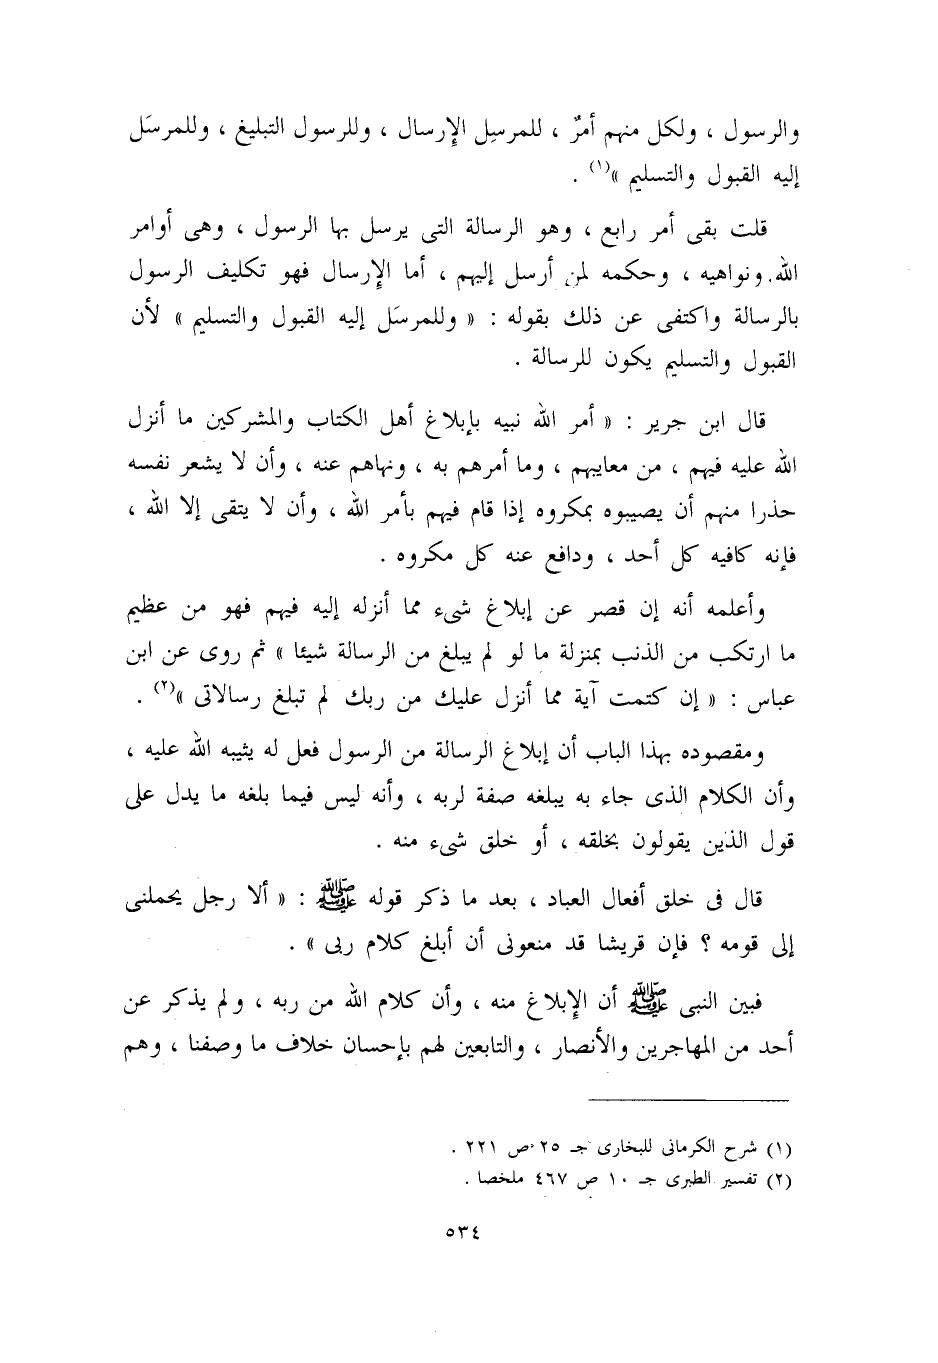 والرسول ، ولكل منهم أمرٌ ، للمرسِل الإِرسال ، وللرسول التبليغ ، وللمرسَل
إليه القبول والتسليم »(١) .
قلت بقى أمر رابع ، وهو الرسالة التى يرسل بها الرسول ، وهى أوامر
الله ونواهيه ، وحكمه لمن أرسل إليهم ، أما الإِرسال فهو تكليف الرسول
بالرسالة واكتفى عن ذلك بقوله : « وللمرسَل إليه القبول والتسليم » لأن
القبول والتسليم يكون للرسالة .
قال ابن جرير : « أمر الله نبيه بإبلاغ أهل الكتاب والمشركين ما أنزل
الله عليه فيهم ، من معايبهم ، وما أمرهم به ، ونهاهم عنه ، وأن لا يشعر نفسه
حذرا منهم أن يصيبوه بمكروه إذا قام فيهم بأمر الله ، وأن لا يتقى إلا الله ،
فإنه كافيه كل أحد ، ودافع عنه كل مكروه .
وأعلمه أنه إن قصر عن إبلاغ شىء مما أنزله إليه فيهم فهو من عظيم
ما ارتكب من الذنب بمنزلة ما لو لم يبلغ من الرسالة شيئا » ثم روى عن ابن
عباس : « إن كتمت آية مما أنزل عليك من ربك لم تبلغ رسالاتى »(٢) .
ومقصوده بهذا الباب أن إبلاغ الرسالة من الرسول فعل له يثيبه الله عليه ،
وأن الكلام الذى جاء به يبلغه صفة لربه ، وأنه ليس فيما بلغه ما يدل على
قول الذين يقولون بخلقه ، أو خلق شىء منه .
قال فى خلق أفعال العباد ، بعد ما ذكر قوله ﷺ : « ألا رجل يحملنى
إلى قومه ؟ فإن قريشا قد منعونى أن أبلغ كلام ربى » .
فبين النبى ﷺ أن الإِبلاغ منه ، وأن كلام الله من ربه ، ولم يذكر عن
أحد من المهاجرين والأنصار ، والتابعين لهم بإحسان خلاف ما وصفنا ، وهم
(١) شرح الكرمانى للبخارى جـ ٢٥ ص ٢٢١ .
(٢) تفسير الطبرى جـ ١٠ ص ٤٦٧ ملخصا .
٥٣٤